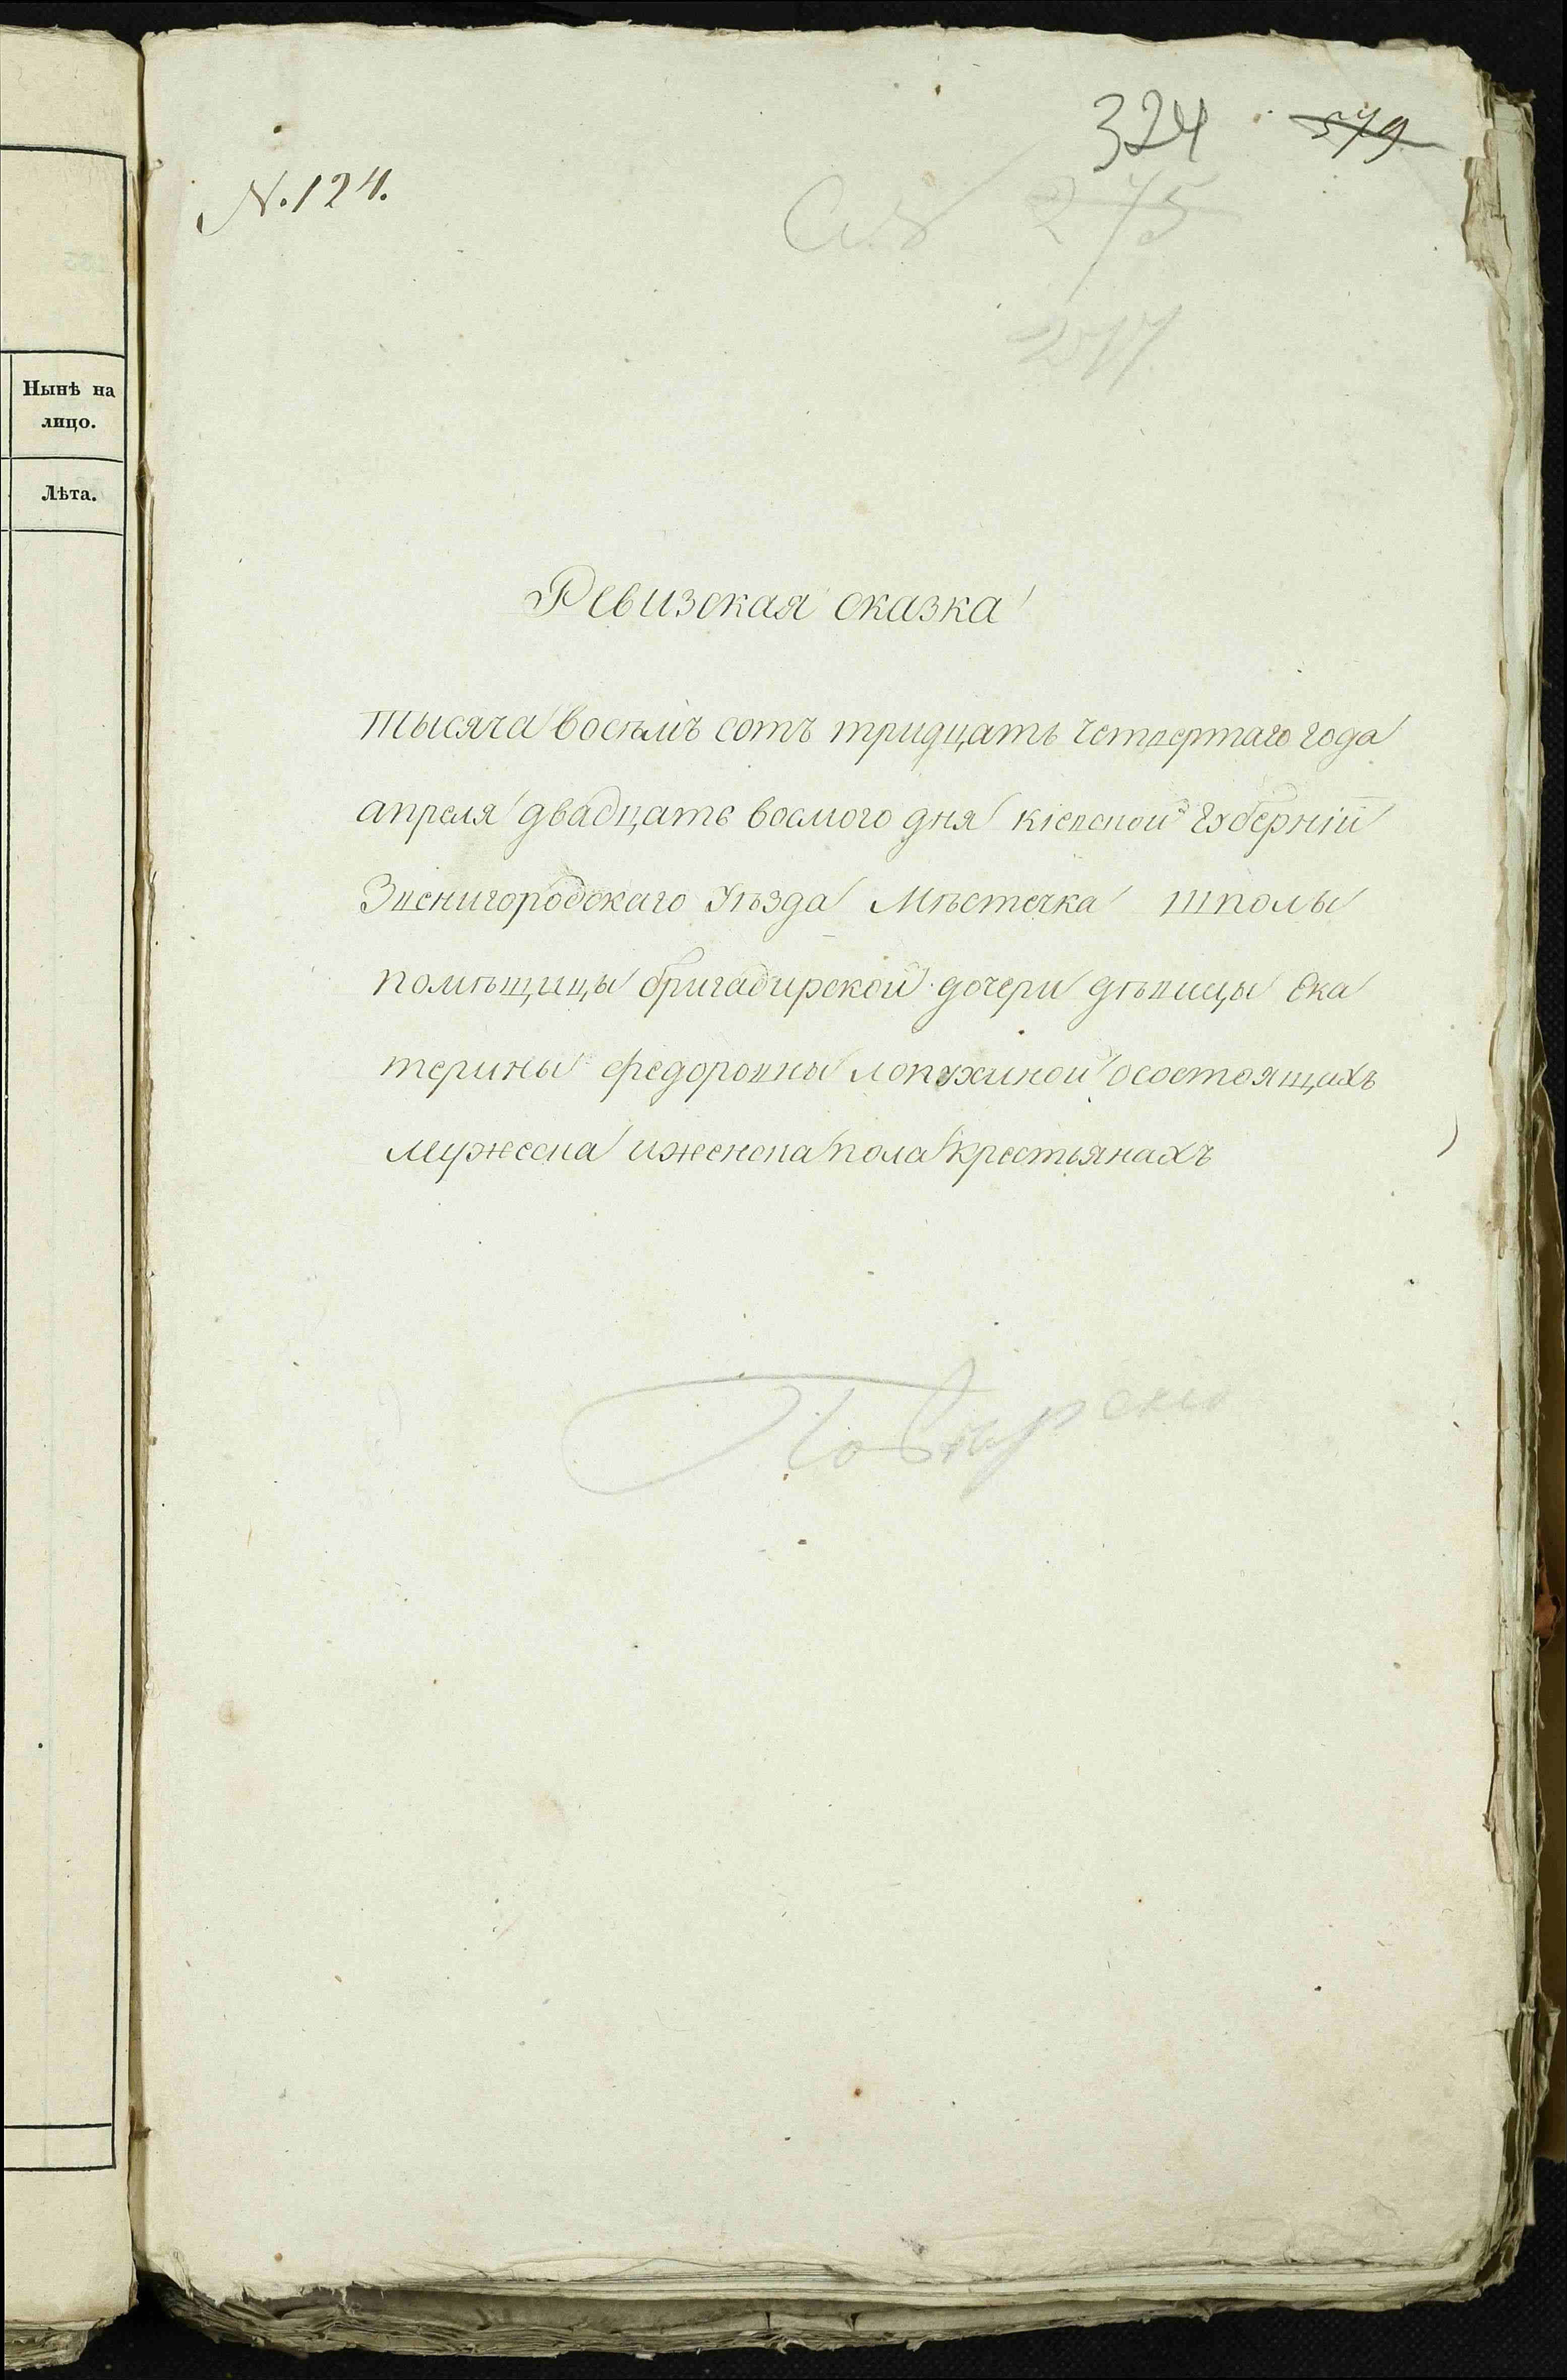 Нынѣ на
лицо.
Лѣта.
324 579
N. 124.
275
Ревизская сказка
тысяча восѣмъ сотъ тридцать четвертаго года
апреля двадцать восмого дня кіевской губерніи
Звенигородскаго Уѣзда Мѣстечка шполы
помѣщицы бригадирской дочери дѣвицы Ека
терины федоровны лопухиной осостоящахъ
мужеска иженска пола крестьянахъ